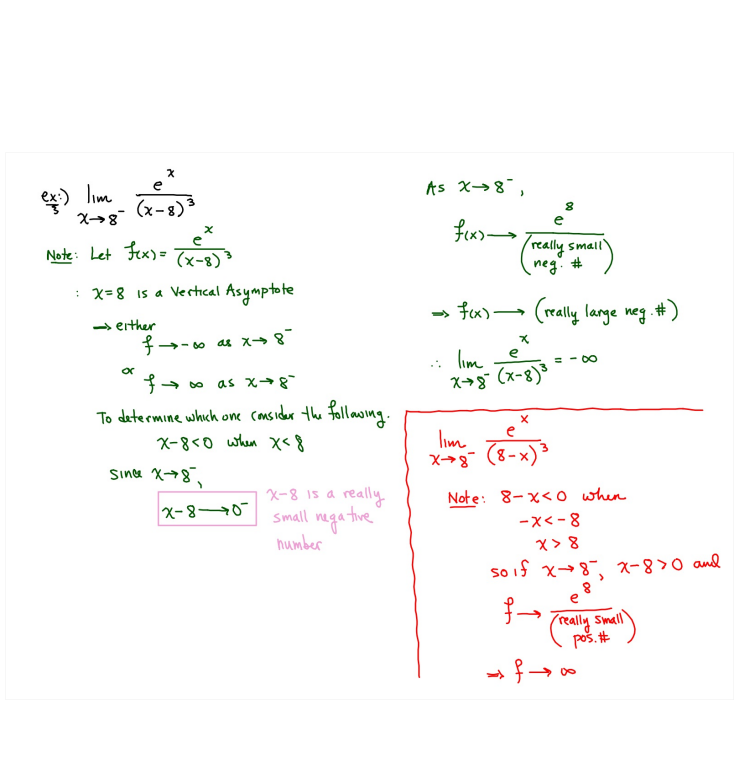 ex:) 3 lim x→8⁻ eˣ/(x-8)³
Note: Let f(x) = eˣ/(x-8)³
: x=8 is a Vertical Asymptote
→ either
f → -∞ as x→8⁻
or
f → ∞ as x→8⁻
To determine which one consider the following.
x-8<0 when x<8
Since x→8⁻,
x-8 → 0⁻
x-8 is a really
small negative
number
As x→8⁻,
f(x) → e⁸/(really small neg. #)
⇒ f(x) → (really large neg. #)
∴ lim x→8⁻ eˣ/(x-8)³ = -∞
lim x→8⁻ eˣ/(8-x)³
Note: 8-x<0 when
-x<-8
x>8
so if x→8⁻, x-8>0 and
f → e⁸/(really small pos. #)
⇒ f → ∞